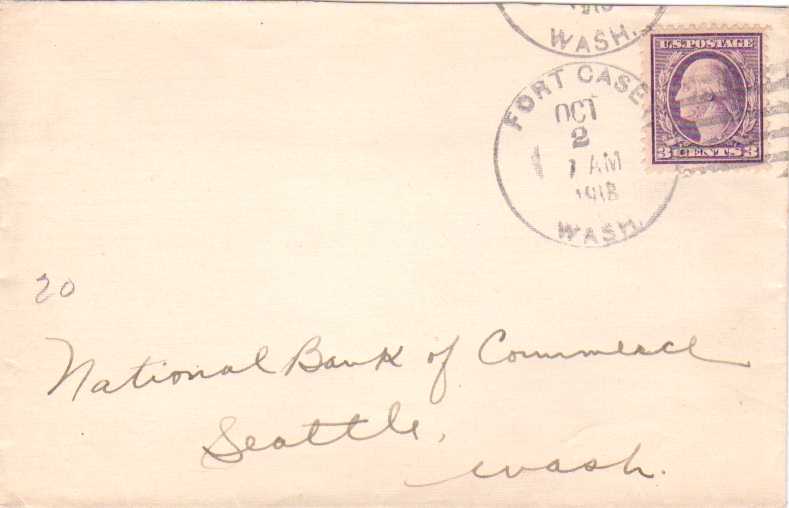 WASH.
U.S. POSTAGE
3 CENTS 3
FORT CASEY
OCT
2
AM
1918
WASH.
20
National Bank of Commerce
Seattle,
Wash.